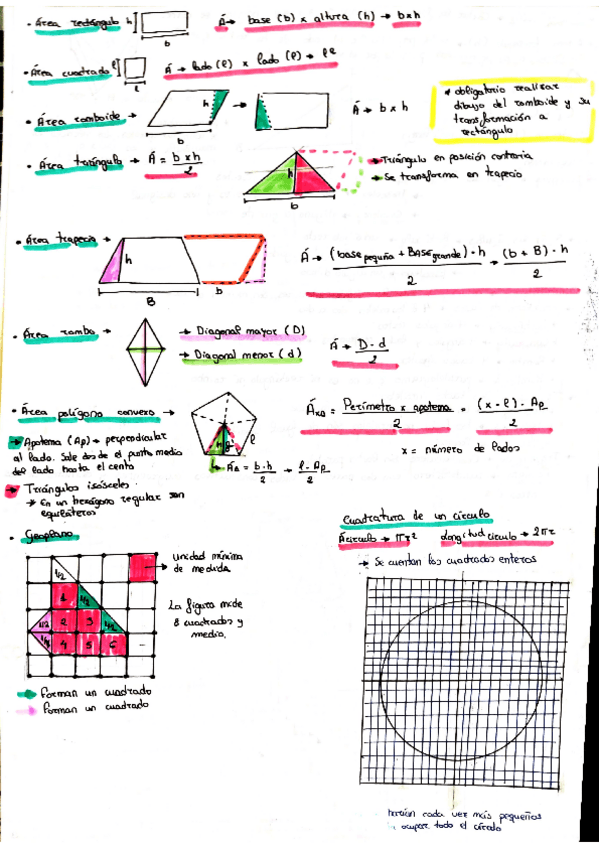 • Área rectángulo h b Á → base (b) x altura (h) → b x h
• Área cuadrado l l Á → lado (l) x lado (l) → l²
• Área romboide → h b Á → b x h
* obligatorio realizar
dibujo del romboide y su
transformación a
rectángulo
• Área triángulo → Á = b x h / 2 h b
→ Triángulo en posición contraria
→ Se transforma en trapecio
• Área trapecio → h B b Á → (base pequeña + BASE grande) · h / 2 → (b + B) · h / 2
• Área rombo → → Diagonal mayor (D)
→ Diagonal menor (d)
Á → D · d / 2
• Área polígono convexo → l
→ Apotema (Ap) → perpendicular
al lado. Sale desde el punto medio
del lado hasta el cento
→ Triángulos isósceles
* En un hexágono regular son
equiláteros
b · h / 2 → l · Ap / 2
Perímetro x apotema / 2 = (x · l) · Ap / 2
x = número de lados
• Geoplano
1/2
1 1/2
1/2 2 3 1/2
4 5 6
Unidad mínima
de medida
La figura mide
8 cuadrados y
medio.
→ Forman un cuadrado
→ Forman un cuadrado
Cuadratura de un círculo
Á círculo → πr² Longitud círculo → 2πr
→ Se cuentan los cuadrados enteros
cada vez más pequeños
ocupar todo el círculo